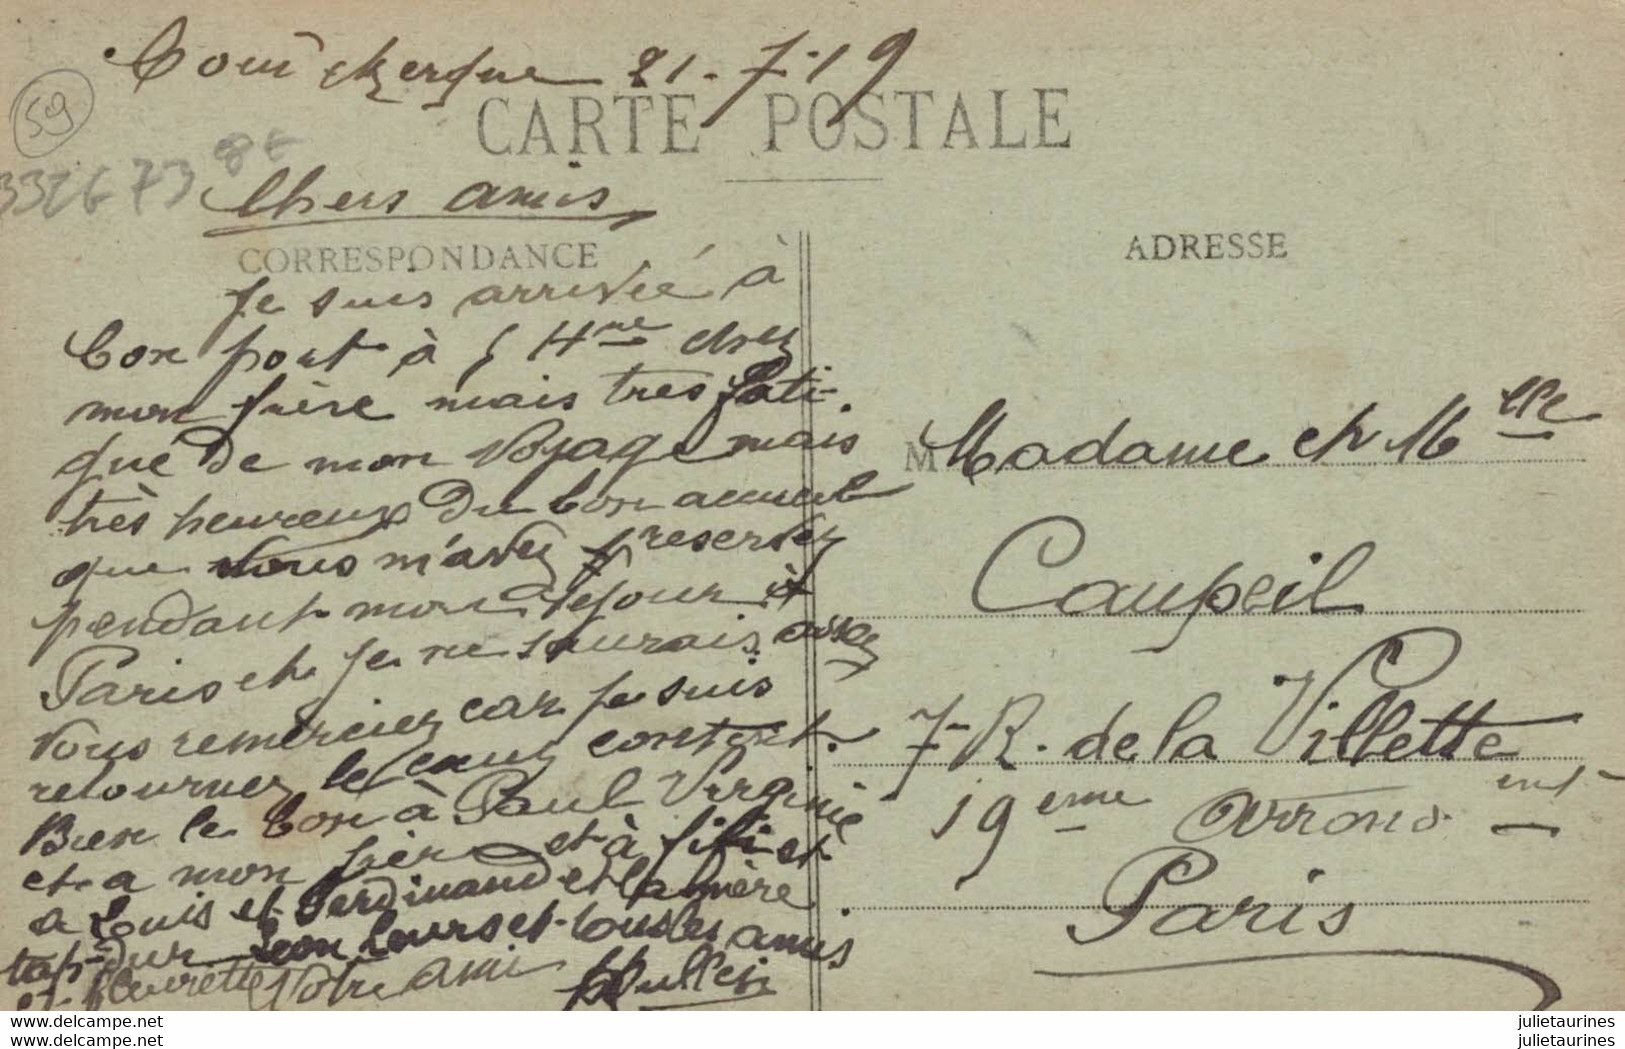 Coudekerque 21-7-19
59
CARTE POSTALE
332673 8€
Chers amis
CORRESPONDANCE
Je suis arrivée à
bon port à 5 H chez
mon frère mais tres fati-
gué de mon voyage mais
très heureux du bon accueil
que vous m'avez reservez
pendant mon séjour à
Paris et je ne saurais assez
vous remerciez car je suis
retournez le cœur content.
Bien le bon à Paul Virginie
et a mon frère et à fifi et
a Louis et Ferdinand et la mère
Léon Leurs et tous les amis
et fleurette Votre ami
ADRESSE
M Madame et Melle
Caupeil
7 R. de la Villette
19eme Arrondismt
Paris
www.delcampe.net
www.delcampe.net
julietaurines
julietaurines